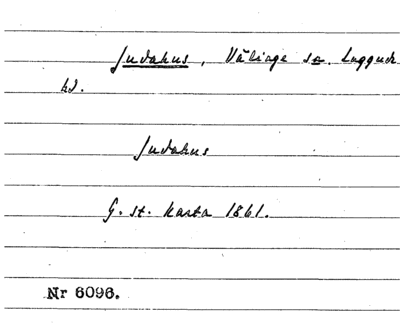 Judahus, Välinge sn. Luggude
hd.
Judahus
G. st. karta 1861.
Nr 6096.